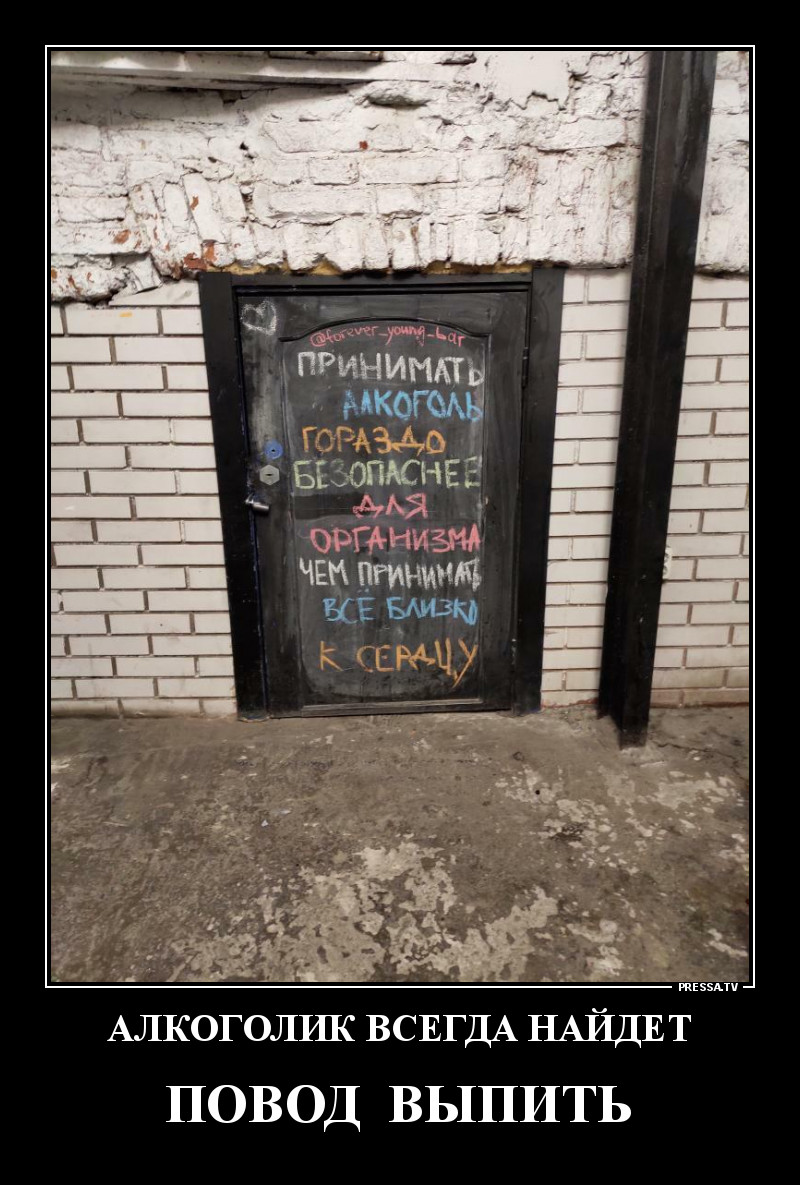 @forever_young_bar
ПРИНИМАТЬ
АЛКОГОЛЬ
ГОРАЗДО
БЕЗОПАСНЕЕ
ДЛЯ
ОРГАНИЗМА
ЧЕМ ПРИНИМАТЬ
ВСЁ БЛИЗКО
К СЕРДЦУ
PRESSA.TV
АЛКОГОЛИК ВСЕГДА НАЙДЕТ
ПОВОД ВЫПИТЬ